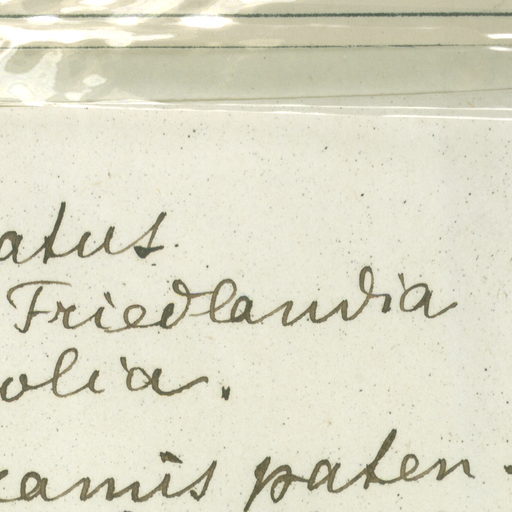 atus.
Friedlandia
olia.
ramis paten-